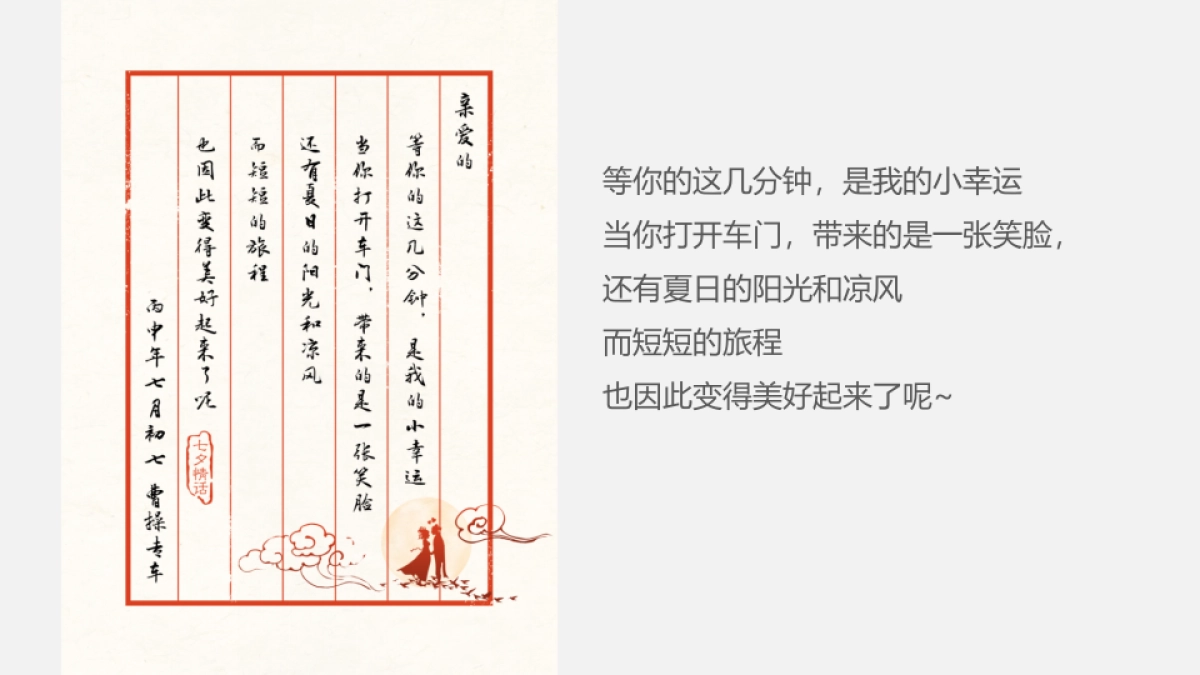 亲爱的
等你的这几分钟，是我的小幸运
当你打开车门，带来的是一张笑脸
还有夏日的阳光和凉风
而短短的旅程
也因此变得美好起来了呢
七夕情话
丙申年七月初七 曹操专车
等你的这几分钟，是我的小幸运
当你打开车门，带来的是一张笑脸，
还有夏日的阳光和凉风
而短短的旅程
也因此变得美好起来了呢~